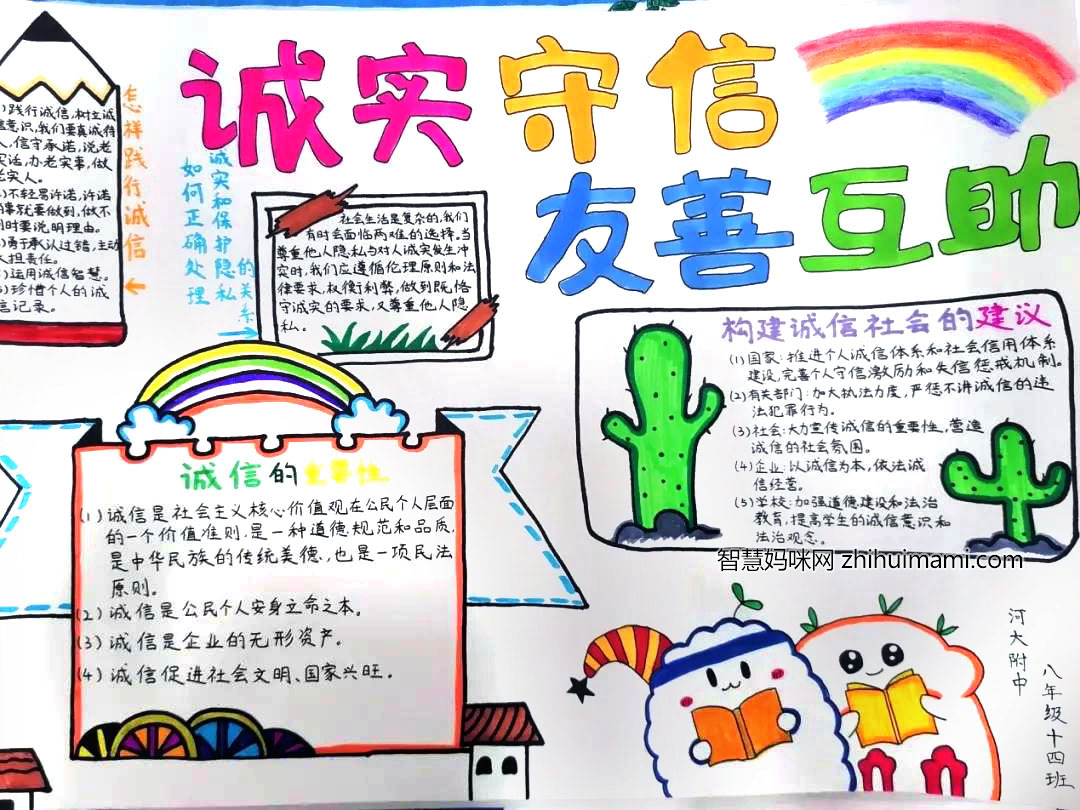 诚实守信
友善互助
怎样践行诚信
)践行诚信,树立诚
信意识,我们要真诚待
人,信守承诺,说老
实话,办老实事,做
老实人。
)不轻易许诺,许诺
的事就要做到,做不
到时要说明理由。
)勇于承认过错,主动
承担责任。
)运用诚信智慧。
)珍惜个人的诚
信记录。
如何正确处理
诚实和保护隐私
的关系
社会生活是复杂的,我们
有时会面临两难的选择。当
尊重他人隐私与对人诚实发生冲
突时,我们应遵循伦理原则和法
律要求,权衡利弊,做到既恪
守诚实的要求,又尊重他人隐
私。
构建诚信社会的建议
(1)国家:推进个人诚信体系和社会信用体系
建设,完善个人守信激励和失信惩戒机制。
(2)有关部门:加大执法力度,严惩不讲诚信的违
法犯罪行为。
(3)社会:大力宣传诚信的重要性,营造
诚信的社会氛围。
(4)企业:以诚信为本,依法诚
信经营。
(5)学校:加强道德建设和法治
教育,提高学生的诚信意识和
法治观念。
智慧妈咪网 zhihuimami.com
诚信的重要性
(1)诚信是社会主义核心价值观在公民个人层面
的一个价值准则,是一种道德规范和品质,
是中华民族的传统美德,也是一项民法
原则。
(2)诚信是公民个人安身立命之本。
(3)诚信是企业的无形资产。
(4)诚信促进社会文明、国家兴旺。
河大附中
八年级十四班